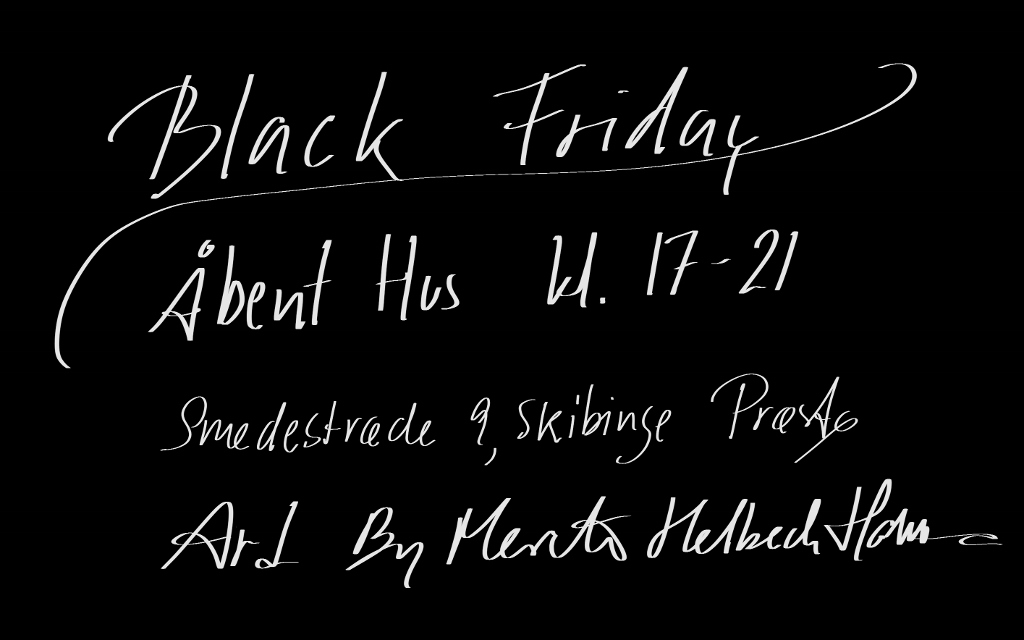 Black Friday
Åbent Hus kl. 17-21
Smedestræde 9, Skibinge Præstø
Art By Helbech